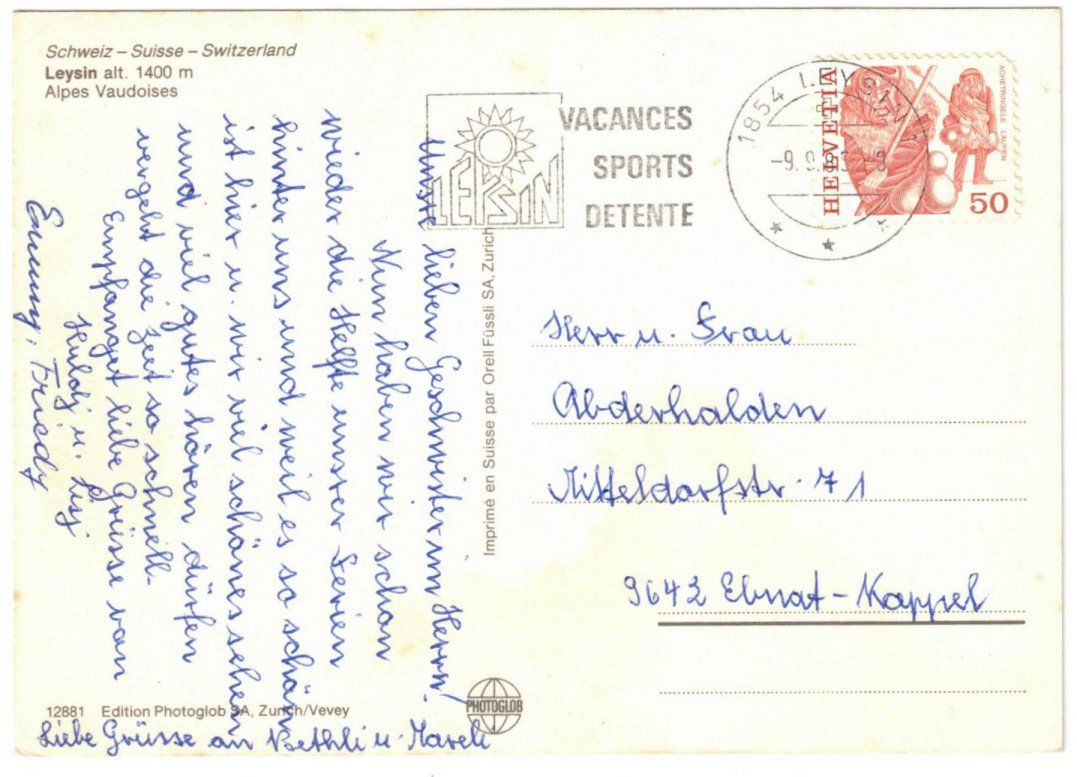 Schweiz – Suisse – Switzerland
Leysin alt. 1400 m
Alpes Vaudoises
LEYSIN
VACANCES
SPORTS
DETENTE
1854 LEYSIN 1
-9. 9.
HELVETIA
ACHETRINGELE LAUPEN
50
lieben Geschwister im Herrn!
Nun haben wir schon
wieder die Helfte unsrer Ferien
hinter uns und weil es so schön
ist hier u. wir viel schönes sehen
und viel gutes hören dürfen
vergeht die Zeit so schnell.
Empfanget liebe Grüsse von
Huldj u. Lisj
Emmy, Friedy
Liebe Grüsse an Bethli u.
Herr u. Frau
Abderhalden
Mitteldorfstr. 71
9642 Ebnat-Kappel
Imprimé en Suisse par Orell Füssli SA, Zurich
12881 Edition Photoglob SA, Zurich/Vevey
PHOTOGLOB